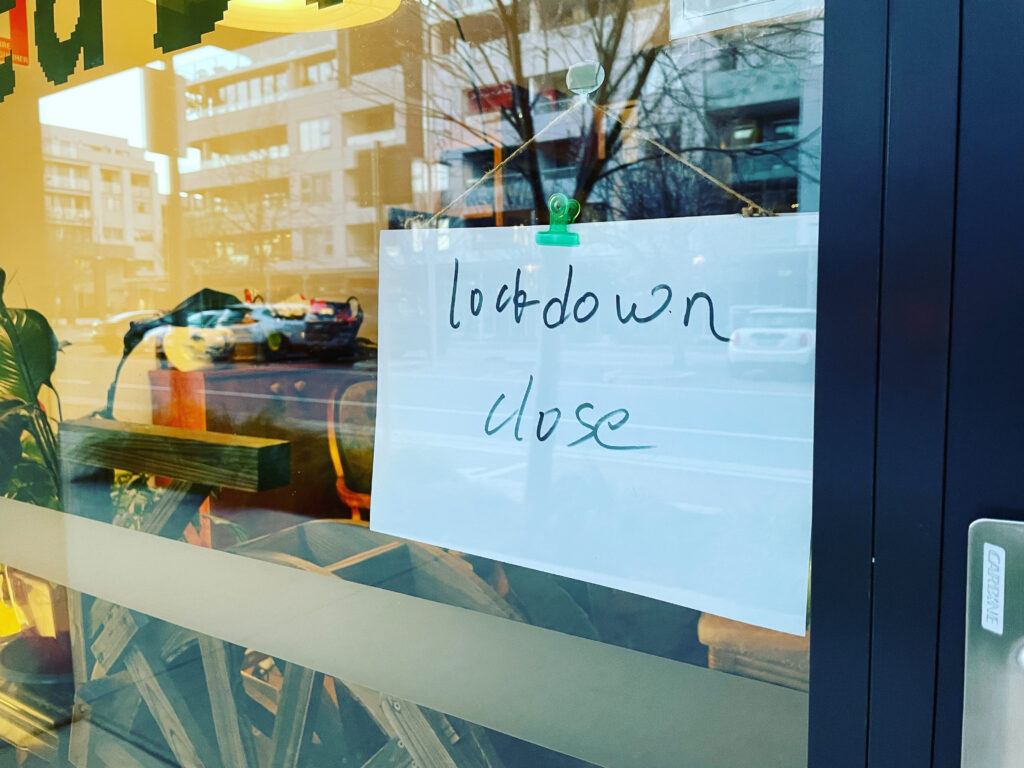 lockdown
close
CARBINE